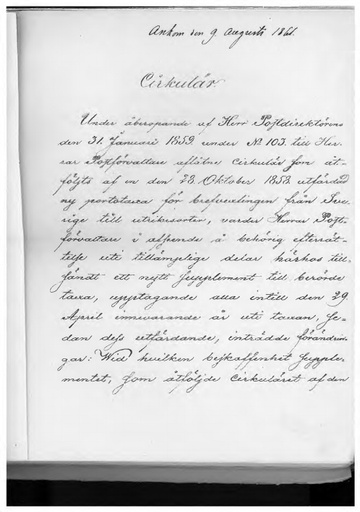 Ankom den 9 Augusti 1861.
Cirkulär
Under åberopande af Herr Postdirektörens
den 31 Januari 1859 under No 103 till Her-
rar Postförvaltare aflåtne cirkulär som åt-
följts af en den 23 Oktober 1858 utfärdad
ny portotaxa för brefvexlingen från Sve-
rige till utrikesorter, varder Herrar Post-
förvaltare i afseende å behörig efterrät-
telse uti tillämplige delar härhos till-
sändt ett nytt Supplement till berörde
taxa, upptagande alla intill den 29
April innevarande år uti taxan, se-
dan dess utfärdande, inträdde förändrin-
gar: Wid hvilken beskaffenhet Supple-
mentet, som åtföljde cirkuläret af den